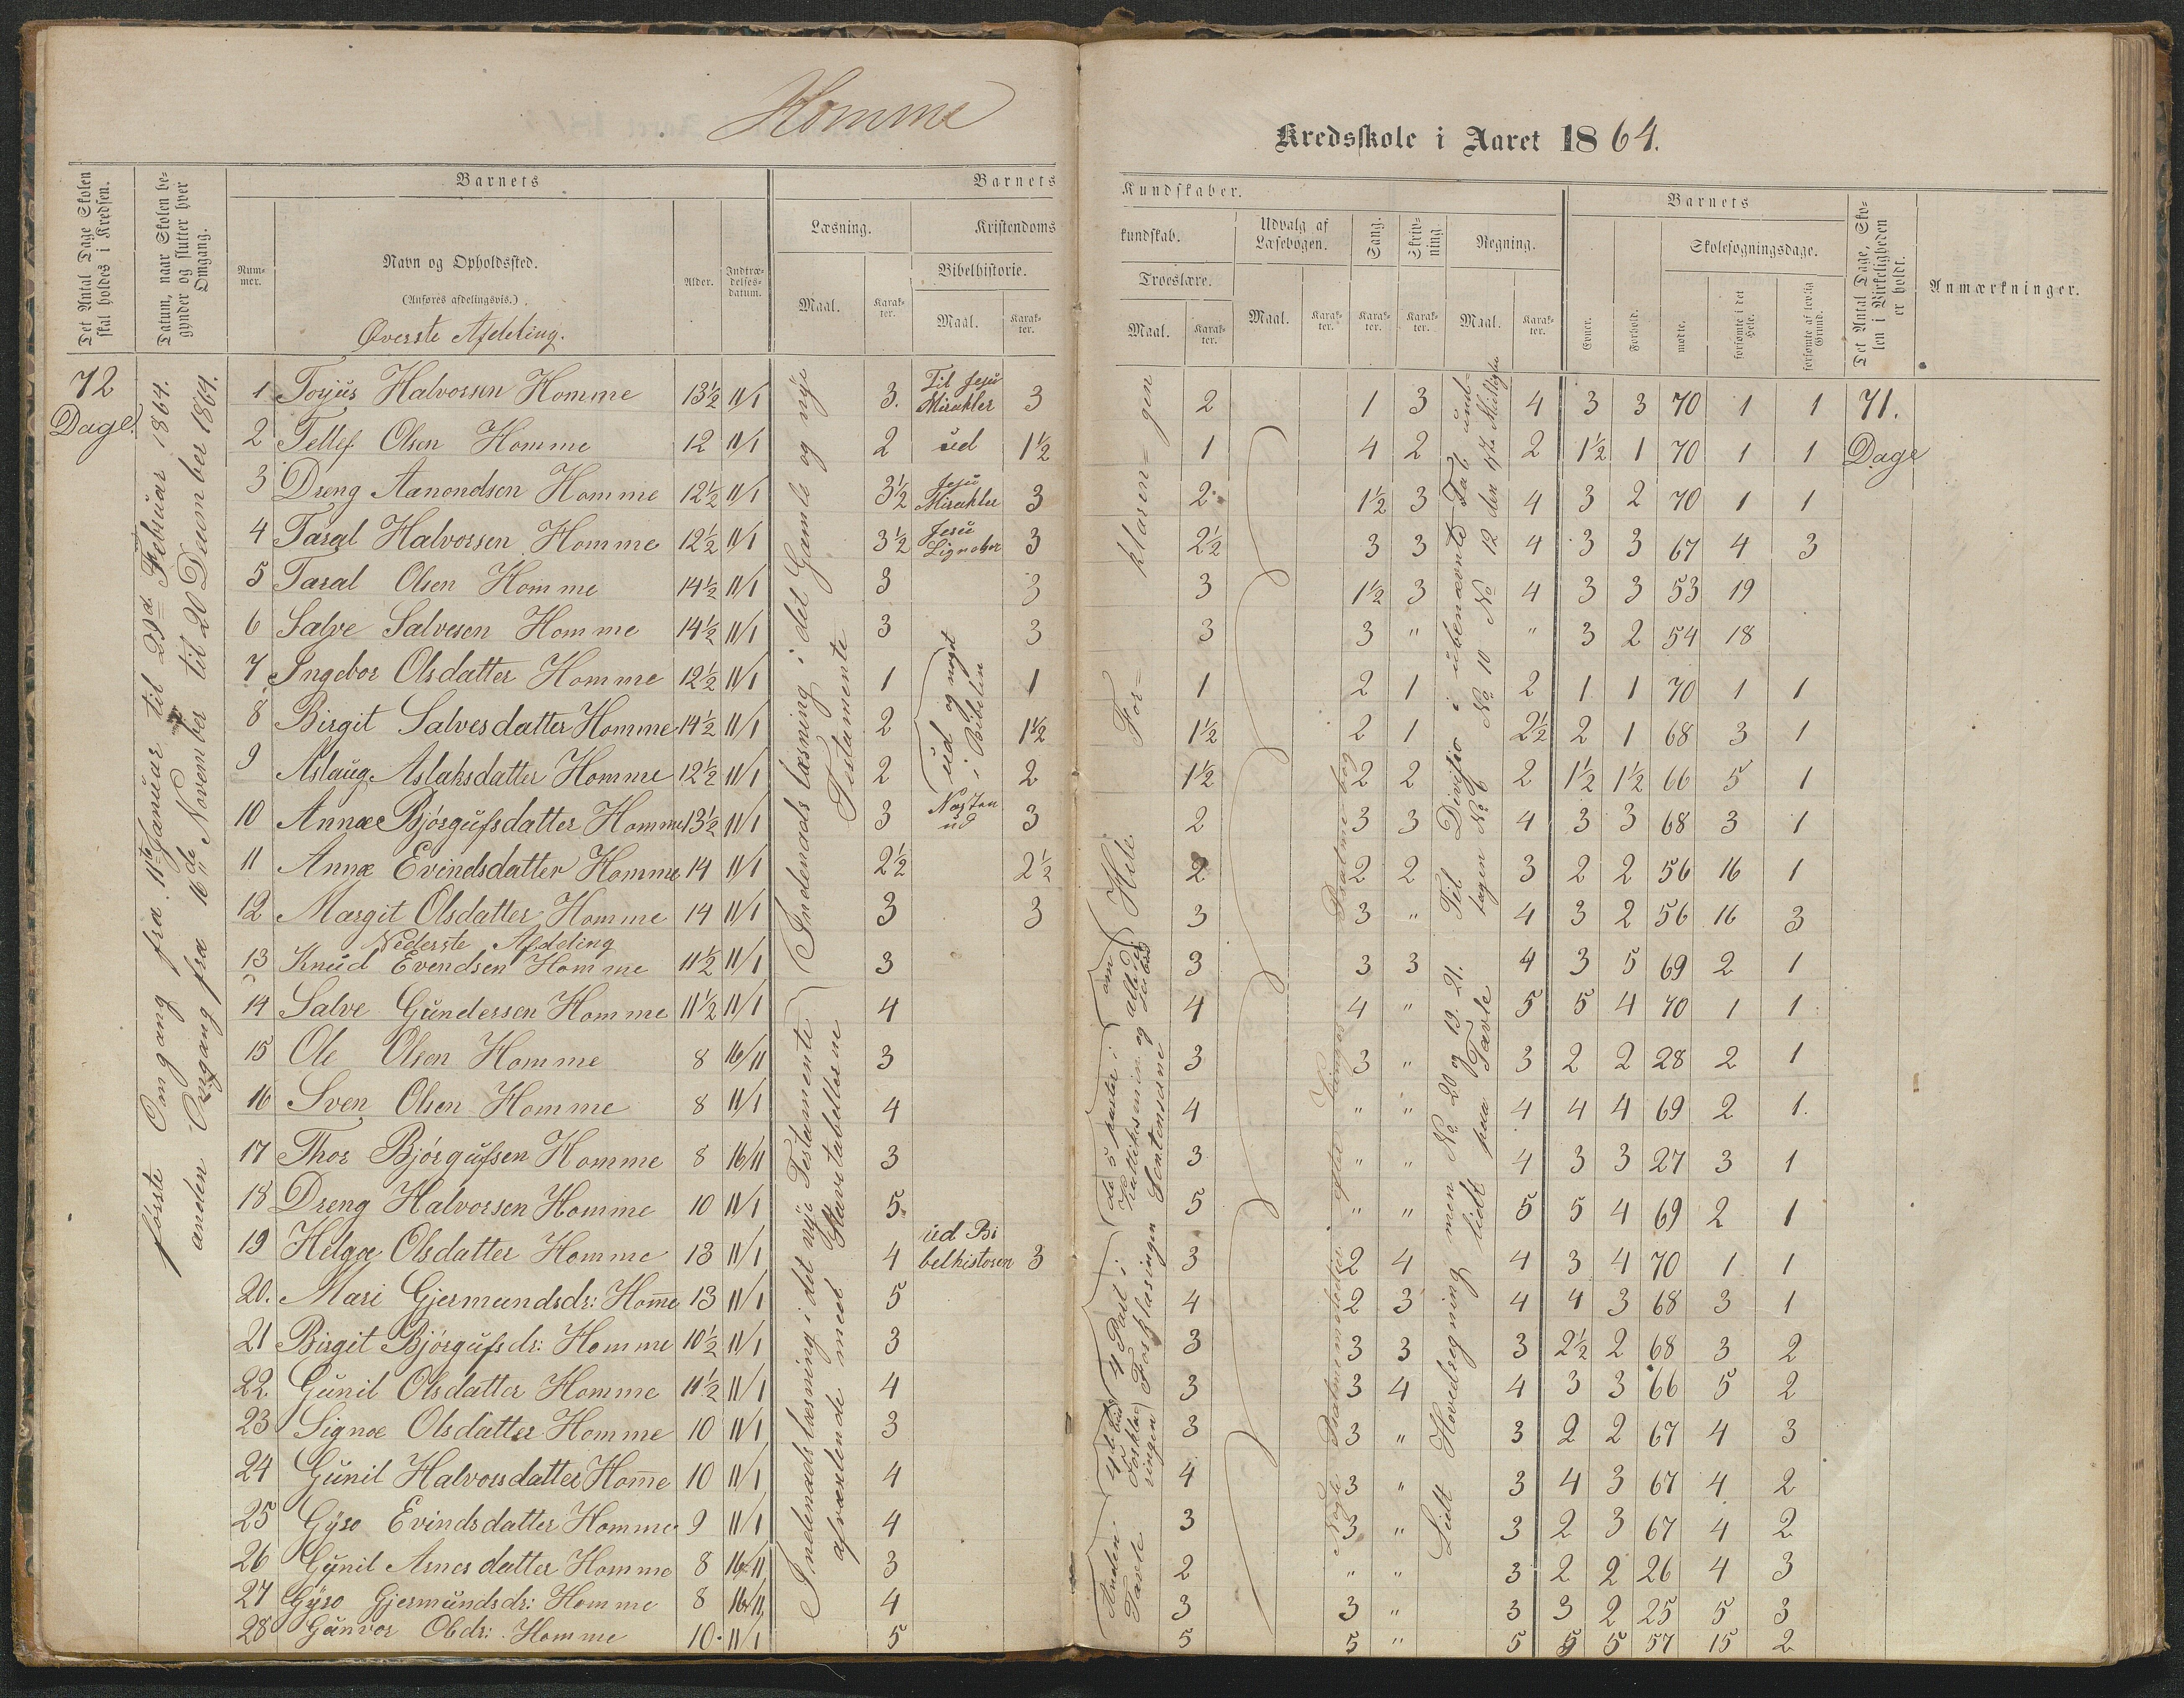 Homme
Kredsskole i Aaret 1864.
Det Antal Dage Skolen skal holdes i Kredsen.
Datum, naar Skolen begynder og slutter hver Omgang.
Barnets
Nummer.
Navn og Opholdssted.
(Anføres afdelingsvis.)
Øverste Afdeling.
Alder.
Indtrædelsesdatum.
Barnets
Læsning.
Maal.
Karakter.
Kristendoms
Bibelhistorie.
Maal.
Karakter.
Kundskaber.
kundskab.
Troeslære.
Maal.
Karakter.
Udvalg af Læsebogen.
Maal.
Karakter.
Sang.
Karakter.
Skrivning
Karakter.
Regning.
Maal.
Karakter.
Barnets
Evner.
Forhold.
Skolesøgningsdage.
mødte.
forsømte i det Hele.
forsømte af lovlig Grund.
Det Antal Dage, Skolen i Virkeligheden er holdt.
Anmærkninger.
72 Dage
første Omgang fra 11te Januar til Februar 1864.
anden Omgang fra 16de November til 20 December 1864.
Indenads læsning i det Gamle og nye Testamente
Indenadslæsning i det nye Testamente afvexlende med Stavetabellerne
1 Torjus Halvorsen Homme 13½ 11/1 3. Til Jesu Mirakler 3 2 1 3 4 3 3 70 1 1 71.
2 Tellef Olsen Homme 12 11/1 2 ud 1½ 1 4 2 2 1½ 1 70 1 1 Dage
3 Dreng Aanondsen Homme 12½ 11/1 3½ Jesu Mirakler 3 2 1½ 3 4 3 2 70 1 1
4 Taral Halvorsen Homme 12½ 11/1 3½ Jesu Lignelser 3 2½ 3 3 4 3 3 67 4 3
5 Taral Olsen Homme 14½ 11/1 3 3 3 1½ 3 4 3 3 53 19
6 Salve Salvesen Homme 14½ 11/1 3 3 3 3 " " 3 2 54 18
7 Ingebor Olsdatter Homme 12½ 11/1 1 ud og noget i Bibelen 1 1 2 1 2 1 1 70 1 1
8 Birgit Salvesdatter Homme 14½ 11/1 2 1½ 1½ 2 1 2½ 2 1 68 3 1
9 Aslaug Aslaksdatter Homme 12½ 11/1 2 2 1½ 2 2 2 1½ 1½ 66 5 1
10 Annæ Bjørgufsdatter Homme 13½ 11/1 3 Næsten ud 3 2 3 3 4 3 3 68 3 1
11 Annæ Evindsdatter Homme 14 11/1 2½ 2½ 2 2 2 3 2 2 56 16 1
12 Margit Olsdatter Homme 14 11/1 3 3 3 3 " 4 3 2 56 16 3
Nederste Afdeling
13 Knud Evendsen Homme 11½ 11/1 3 3 3 3 4 3 5 69 2 1
14 Salve Gundersen Homme 11½ 11/1 4 4 4 " 5 5 4 70 1 1
15 Ole Olsen Homme 8 16/11 3 3 3 " 3 2 2 28 2 1
16 Sven Olsen Homme 8 11/1 4 4 " " 4 4 4 69 2 1.
17 Thor Bjørgufsen Homme 8 16/11 3 3 " " 4 3 3 27 3 1
18 Dreng Halvorsen Homme 10 11/1 5 5 " " 5 5 4 69 2 1
19 Helgæ Olsdatter Homme 13 11/1 4 ud Bibelhistoren 3 3 2 4 4 3 4 70 1 1
20. Mari Gjermundsdr: Home 13 11/1 5 4 2 3 4 4 3 68 3 1
21 Birgit Bjørgufsdr: Homme 10½ 11/1 3 3 3 3 3 2½ 2 68 3 2
22. Gunil Olsdatter Homme 11½ 11/1 4 3 3 4 4 3 3 66 5 2
23 Signe Olsdatter Homme 10 11/1 3 3 3 " 3 2 2 67 4 3
24 Gunil Halvorsdatter Home 10 11/1 4 4 3 " 3 4 3 67 4 2
25 Gyro Evindsdatter Homme 9 11/1 4 3 3 " 3 2 3 67 4 2
26 Gunil Arnesdatter Homme 8 16/11 3 2 " " 3 2 2 26 4 3
27 Gyro Gjermundsdr: Homme 8 16/11 4 3 3 " 3 3 2 25 5 3
28 Gunvor Olsdr: Homme 10 11/1 5 5 5 " 5 5 5 57 15 2
Hele For=klaren=gen
de 5 parter i Katekismusen og
Sentenserne
4 Part i Forklaringen
Anden Tavle
Nogle Psalmemelodier efter Psalmebog
Til Divisjo i ubenævnte Tal
No 10 No 12
Lidt Hovedregning men No 20 og 19. 21. lidt paa Tavle